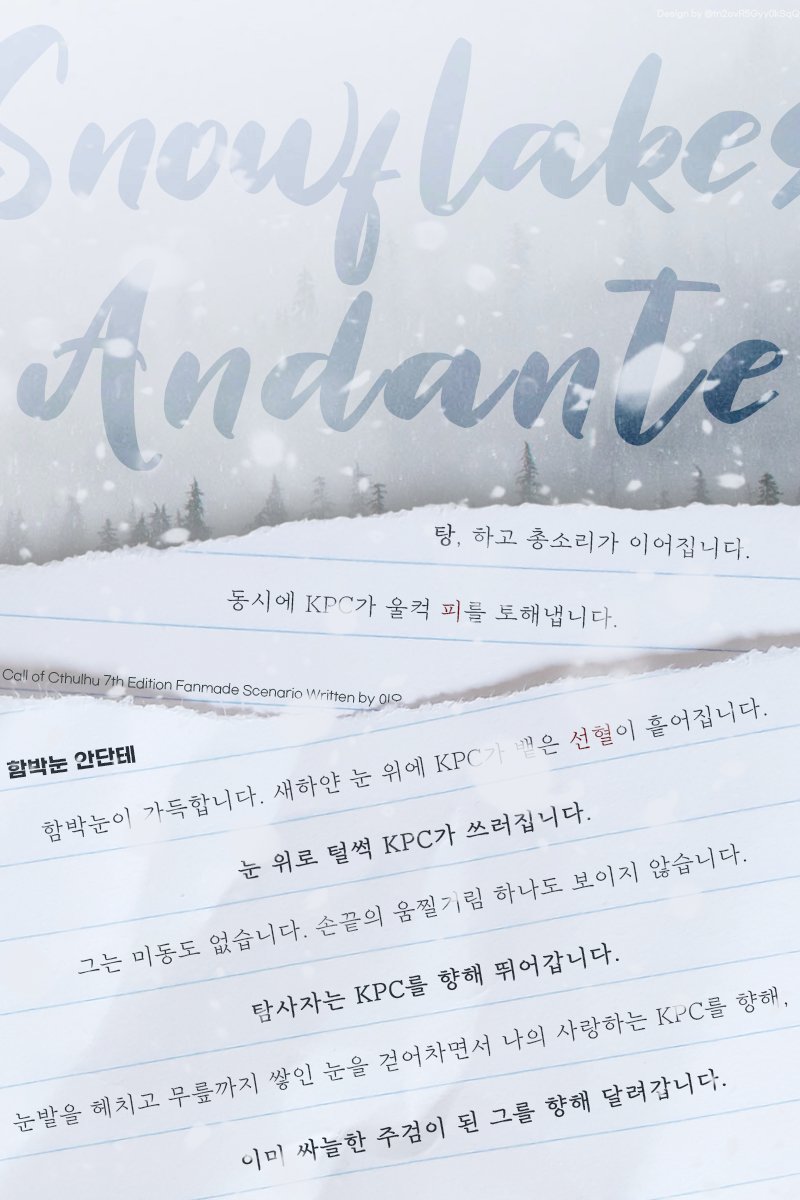 Design by
Snowflakes
Andante
탕, 하고 총소리가 이어집니다.
동시에 KPC가 울컥 피를 토해냅니다.
Call of Cthulhu 7th Edition Fanmade Scenario Written by 이오
함박눈 안단테
함박눈이 가득합니다. 새하얀 눈 위에 KPC가 뱉은 선혈이 흩어집니다.
눈 위로 털썩 KPC가 쓰러집니다.
그는 미동도 없습니다. 손끝의 움찔거림 하나도 보이지 않습니다.
탐사자는 KPC를 향해 뛰어갑니다.
눈발을 헤치고 무릎까지 쌓인 눈을 걷어차면서 나의 사랑하는 KPC를 향해,
이미 싸늘한 주검이 된 그를 향해 달려갑니다.